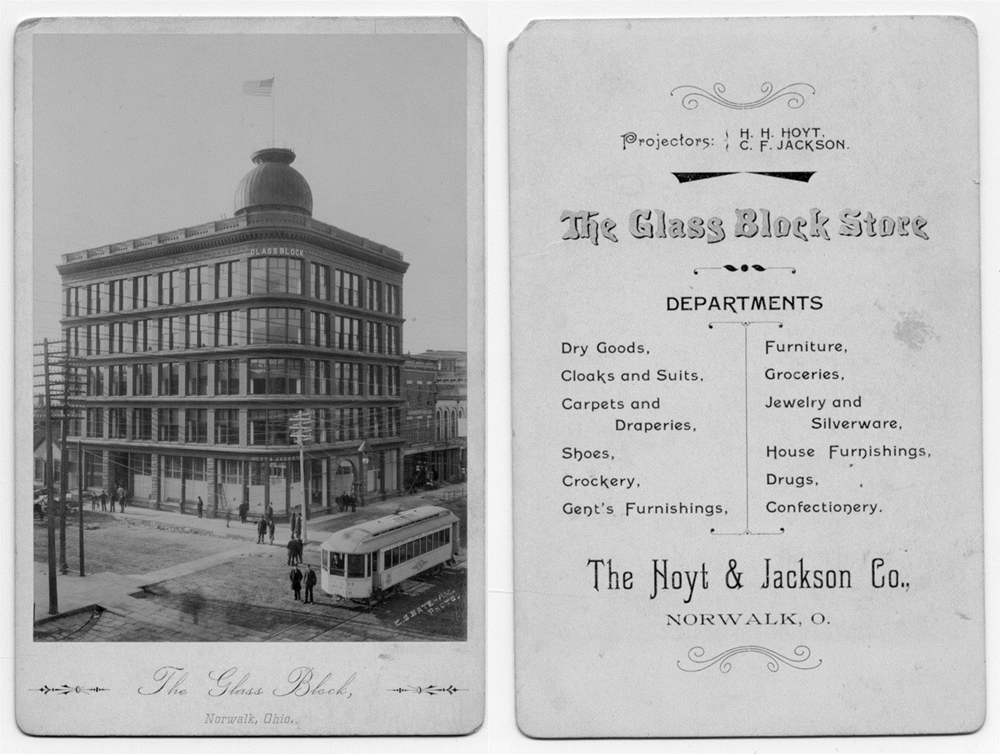 GLASS BLOCK
C. S. BATEHAM.
PHOTO.
The Glass Block,
Norwalk, Ohio.
Projectors: H. H. HOYT.
C. F. JACKSON.
The Glass Block Store
DEPARTMENTS
Dry Goods,
Cloaks and Suits,
Carpets and
Draperies,
Shoes,
Crockery,
Gent's Furnishings,
Furniture,
Groceries,
Jewelry and
Silverware,
House Furnishings,
Drugs,
Confectionery.
The Hoyt & Jackson Co.,
NORWALK, O.